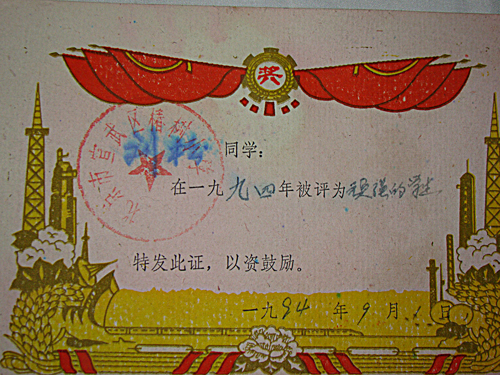 奖
北京市宣武区椿树
刘
同学:
在一九九四年被评为顽强的
特发此证,以资鼓励。
一九94年9月1日